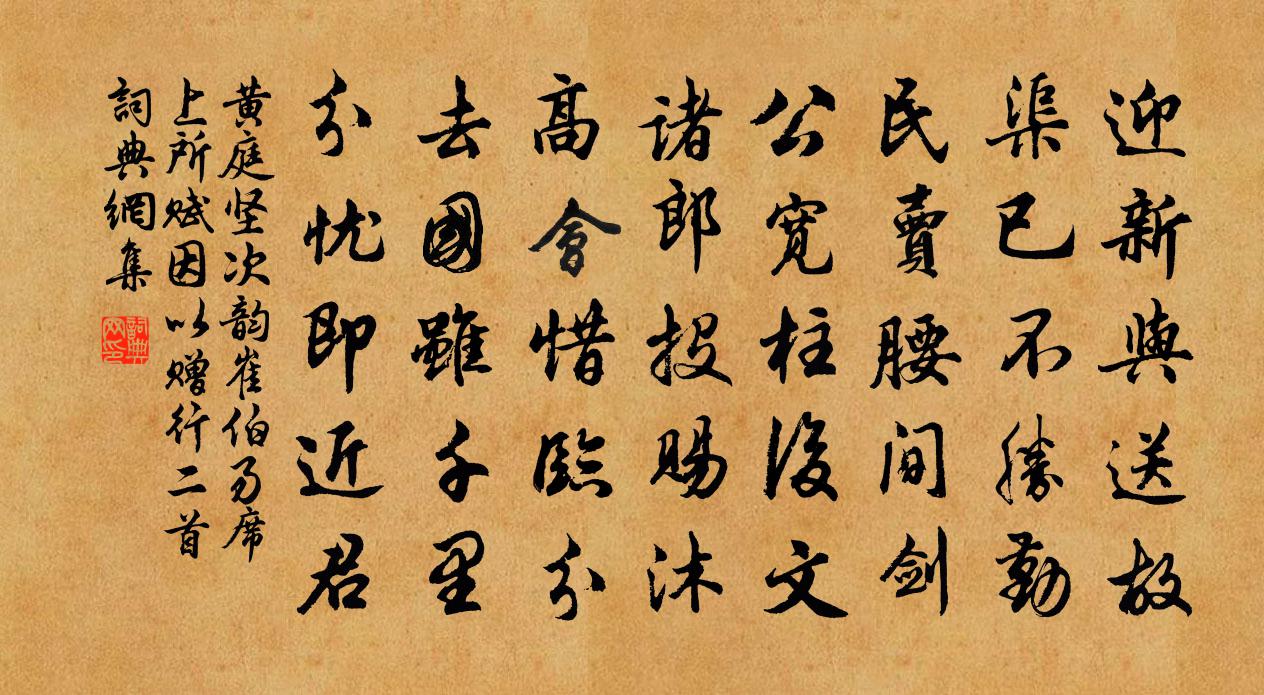 迎新與送故
渠已不勝勤
民賣腰間剑
公寬柱後文
诸郎投賜沐
高會惜臨分
去國雖千里
分忧即近君
黄庭坚次韵崔伯易席
上所赋因以赠行二首
詞典網集
詞典網印